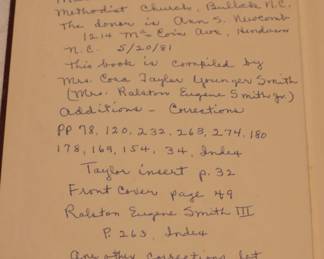 Methodist Church, Bullock N.C.
The donor is Ann S. Newcomb
1214 Mc Coin Ave, Henderson
N.C. 5/20/81
This book is compiled by
Mrs. Cora Taylor Younger Smith
(Mrs. Ralston Eugene Smith Jr.)
Additions - Corrections
PP 78, 120, 232, 263, 274, 180
178, 169, 154, 34, Index
Taylor insert p. 32
Front Cover page 49
Ralston Eugene Smith III
P. 263, Index
Any other corrections let